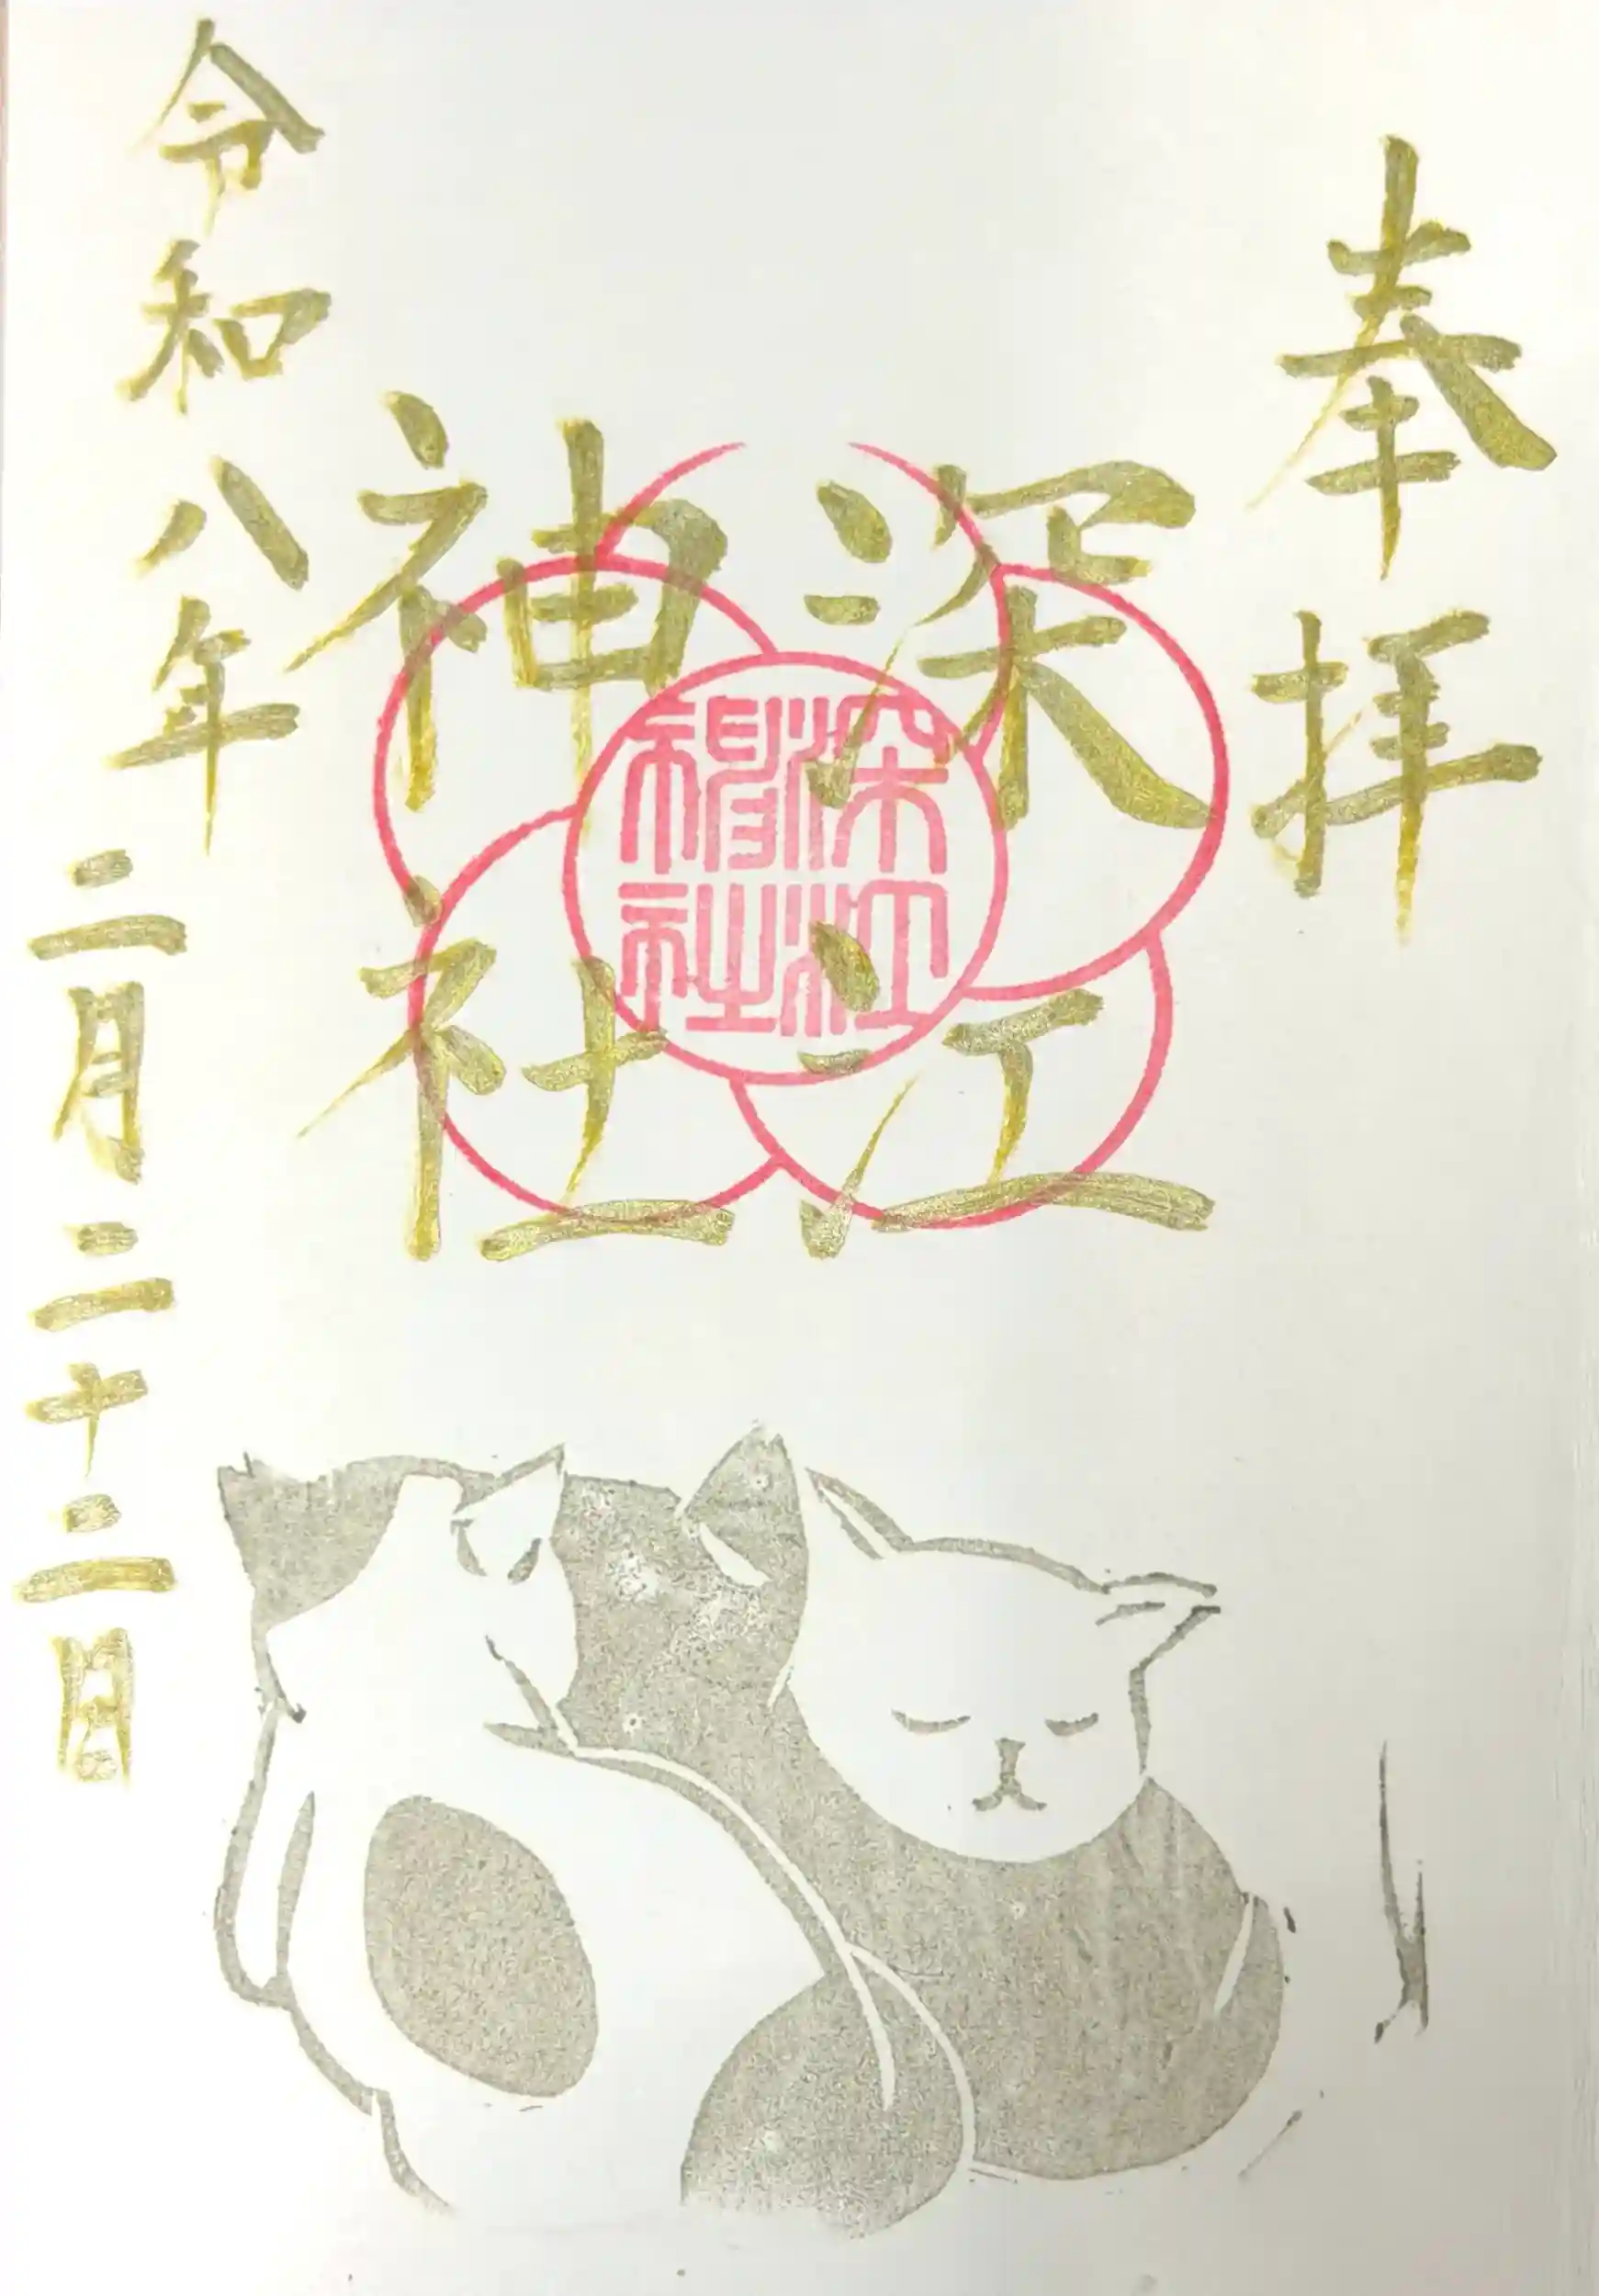 奉拝
深江
神社
深江
神社
令和八年
二月二十二日